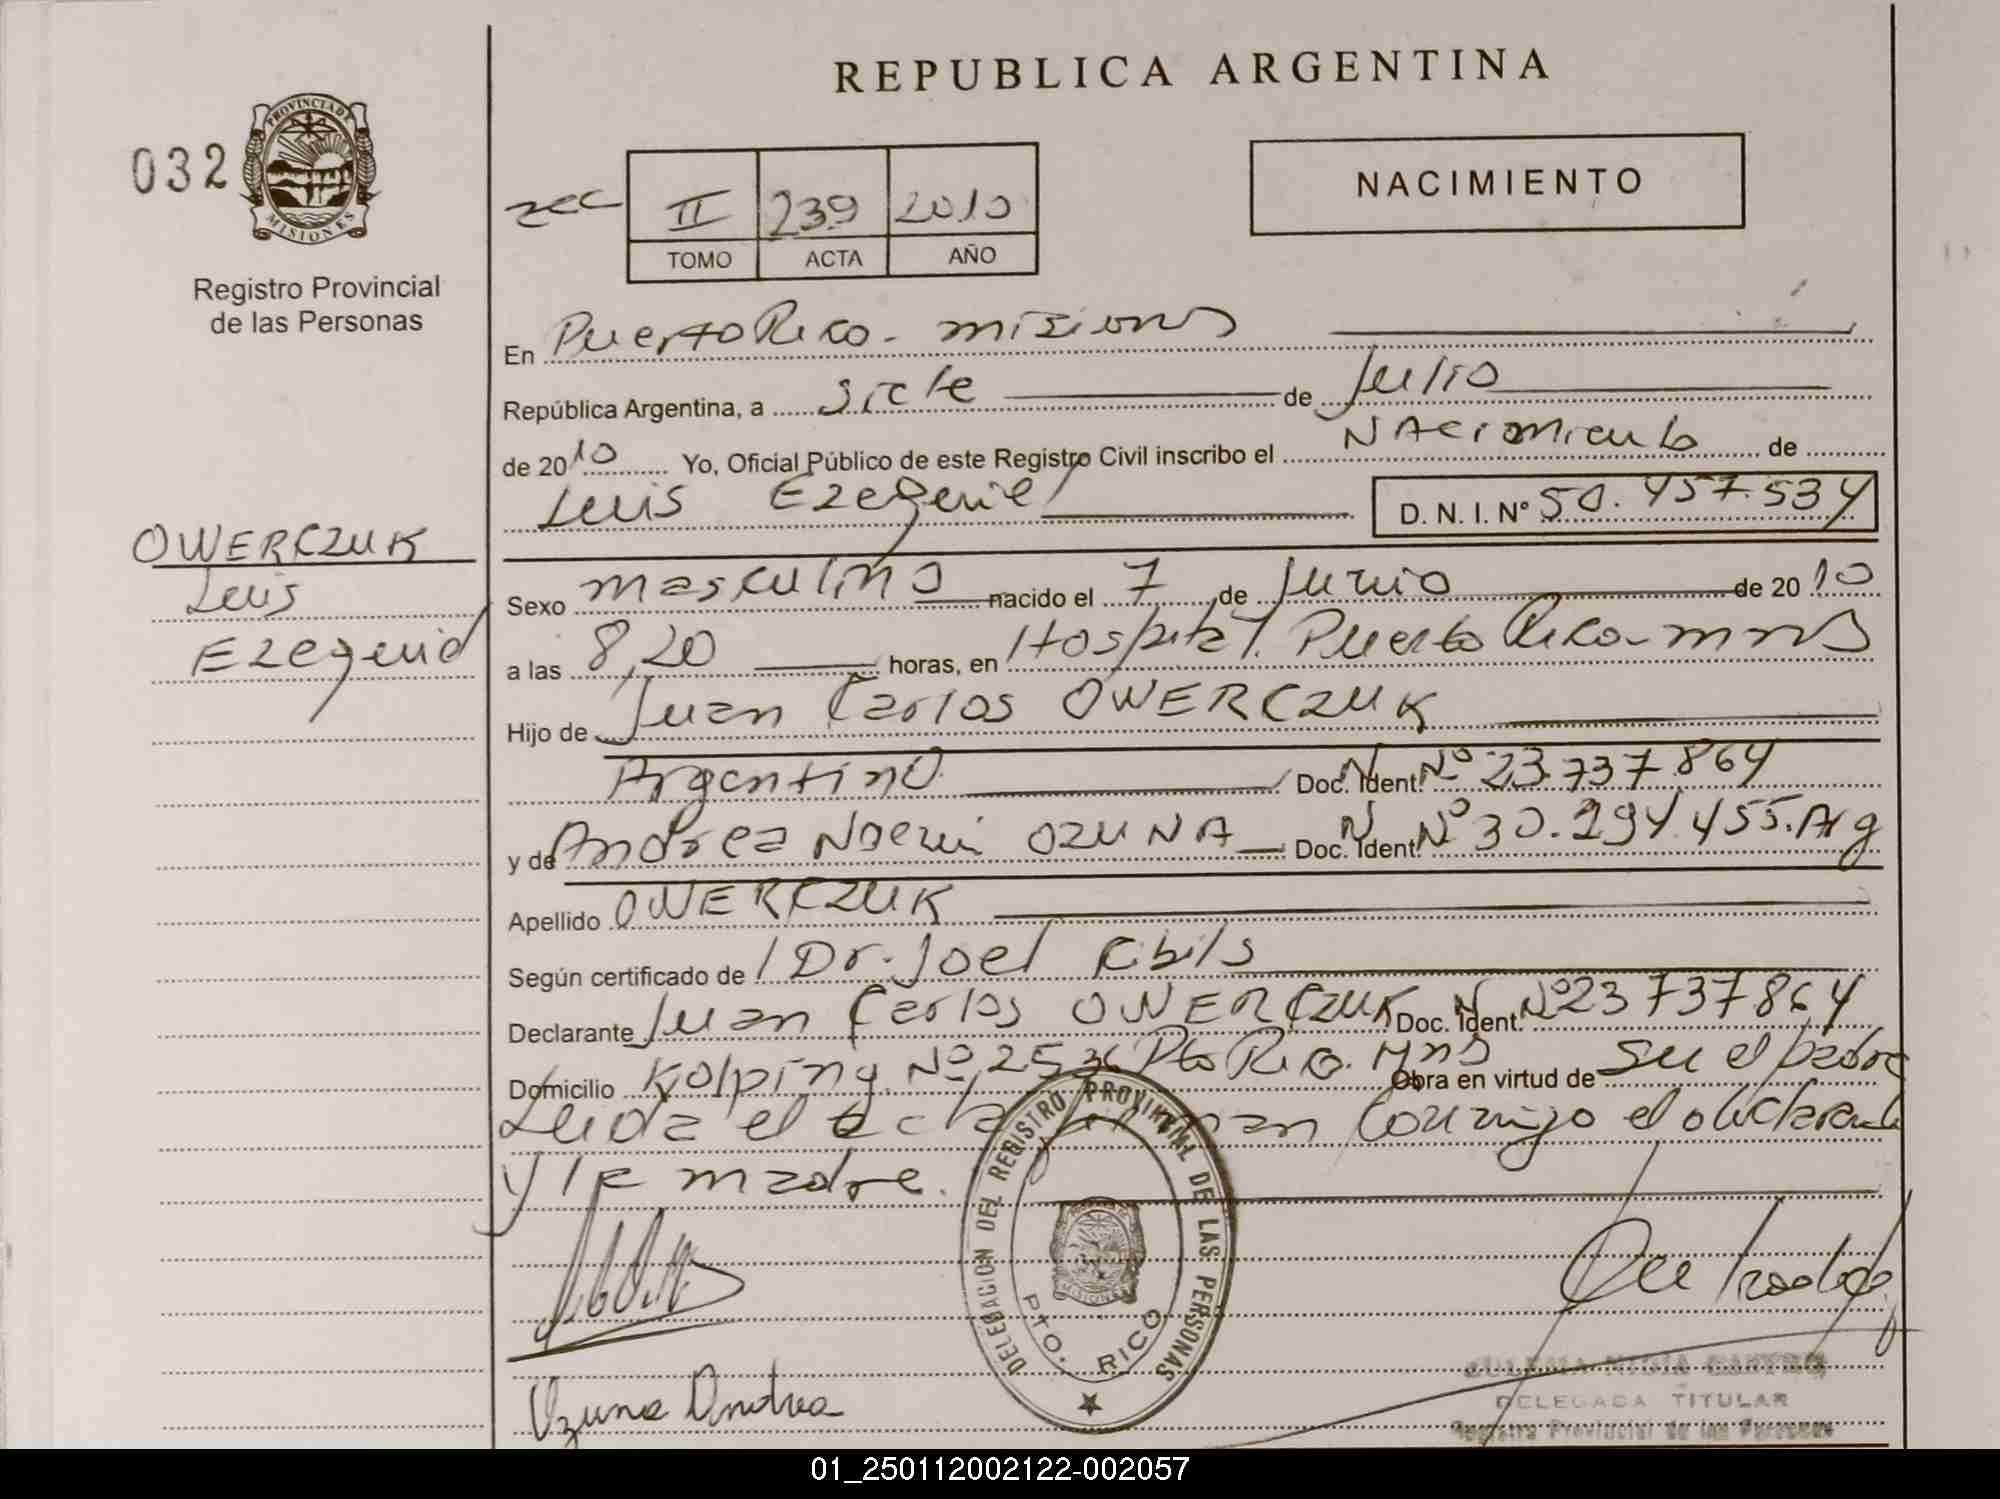 REPUBLICA ARGENTINA
032
PROVINCIA DE
MISIONES
Registro Provincial
de las Personas
II 239 2010
TOMO ACTA AÑO
NACIMIENTO
En Puerto Rico - misiones
República Argentina, a siete de Julio
de 2010 Yo, Oficial Público de este Registro Civil inscribo el Nacimiento de
Luis Ezequiel D. N. I. Nº 50.457.534
OWERCZUK
Luis
Ezequiel
Sexo masculino nacido el 7 de Junio de 2010
a las 8,20 horas, en Hospital. Puerto Rico - mnes
Hijo de Juan Carlos OWERCZUK
Argentino Doc. N. Ident. Nº 23.737.864
y de Andrea Noemi OZUNA Doc. N. Ident. Nº 30.294.455. Arg
Apellido OWERCZUK
Según certificado de Dr. Joel
Declarante Juan Carlos OWERCZUK Doc. N. Ident. Nº 23737864
Domicilio Kolping Nº 2536 Pto Rico. Mns Obra en virtud de Su el padre
Leida el acta firman conmigo el declarante
y la madre.
DELEGACION DEL REGISTRO PROVINCIAL DE LAS PERSONAS
MISIONES
PTO. RICO
Ozuna Andrea
DELEGADA TITULAR
Registro Provincial de las Personas
01_250112002122-002057